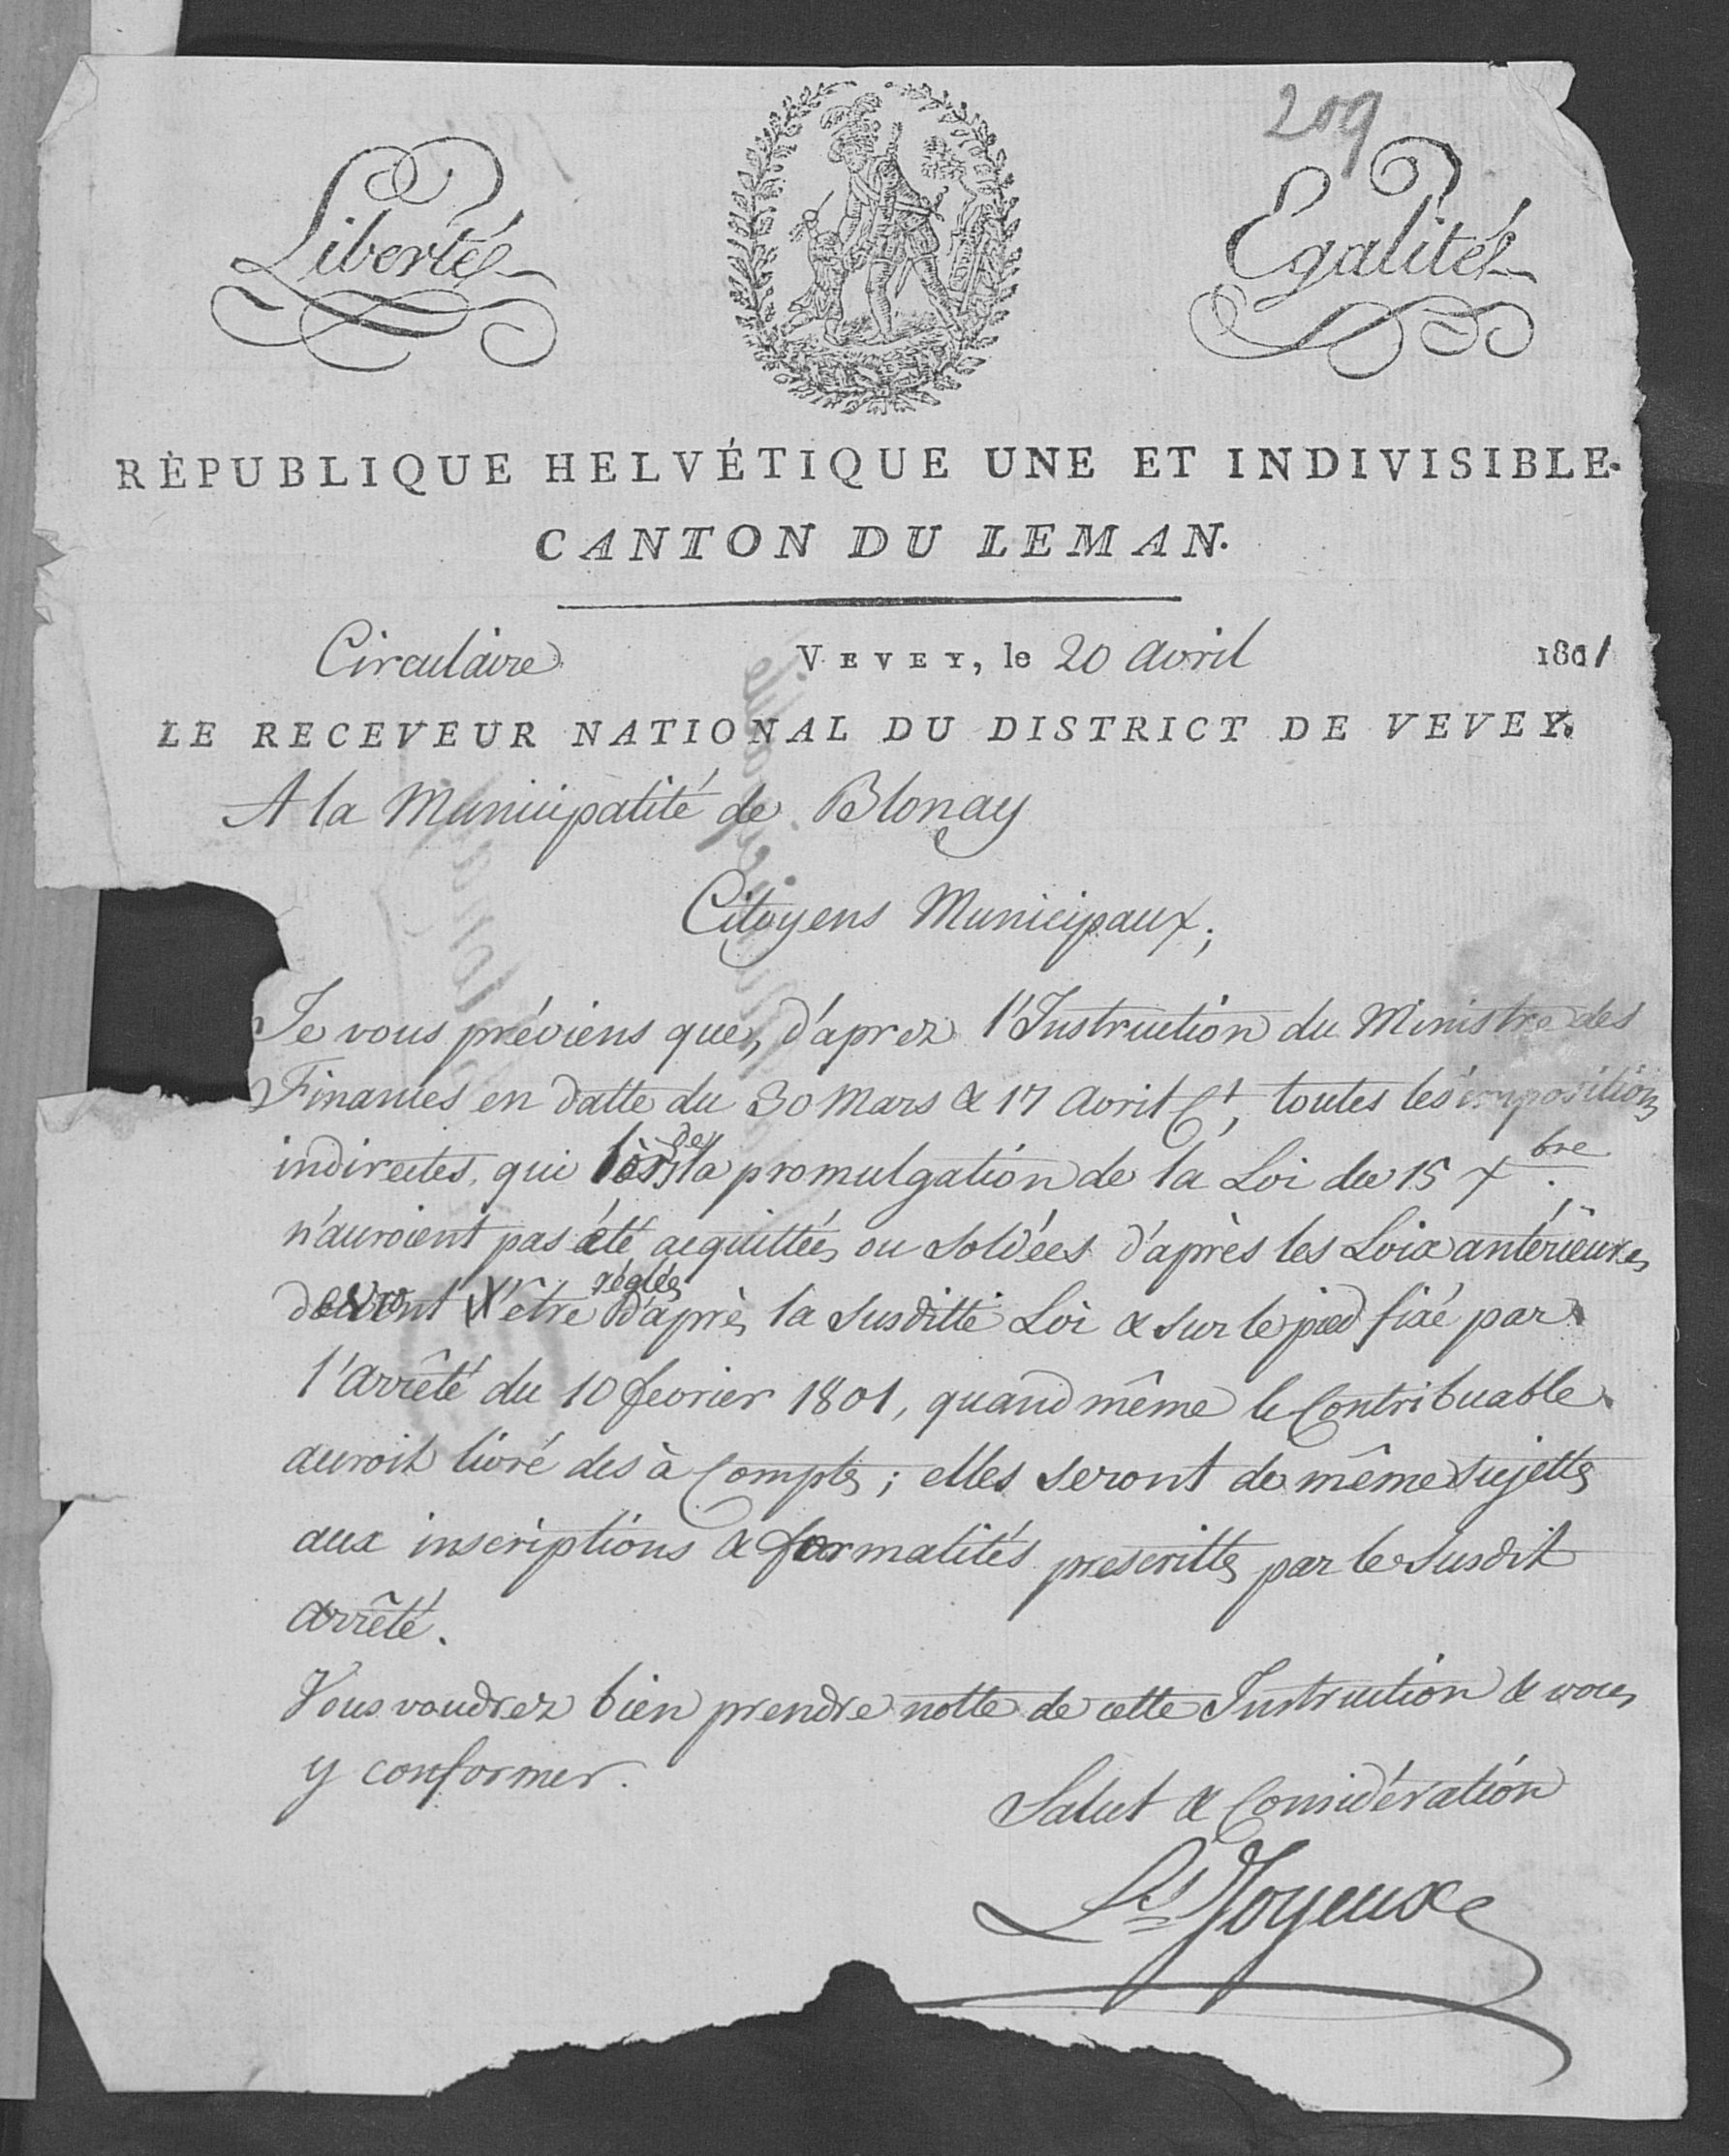 209
Liberté Egalité
RÉPUBLIQUE HELVÉTIQUE UNE ET INDIVISIBLE.
CANTON DU LEMAN.
Circulaire VEVEY, le 20 Avril 1801
LE RECEVEUR NATIONAL DU DISTRICT DE VEVEY.
A la Municipalité de Blonay
Citoyens Municipaux;
Je vous préviens que, d'aprez l'Instruction du Ministre des
Finances en datte du 30 Mars & 17 Avril Ct, toutes les impositions
indirectes, qui lors de la promulgation de la Loi du 15 Xbre.
n'auroient pas été acquittées ou soldées d'après les Loix antérieures
devront être réglées d'après la susditte Loi & sur le pied fixé par
l'Arrêté du 10 fevrier 1801, quand même le Contribuable
auroit livré des à Comptes; elles seront de même sujettes
aux inscriptions & formalités prescrittes par le susdit
Arrêté.
Vous voudrez bien prendre notte de cette Instruction & vous
y conformer.
Salut & Considération
Ls Joyeux